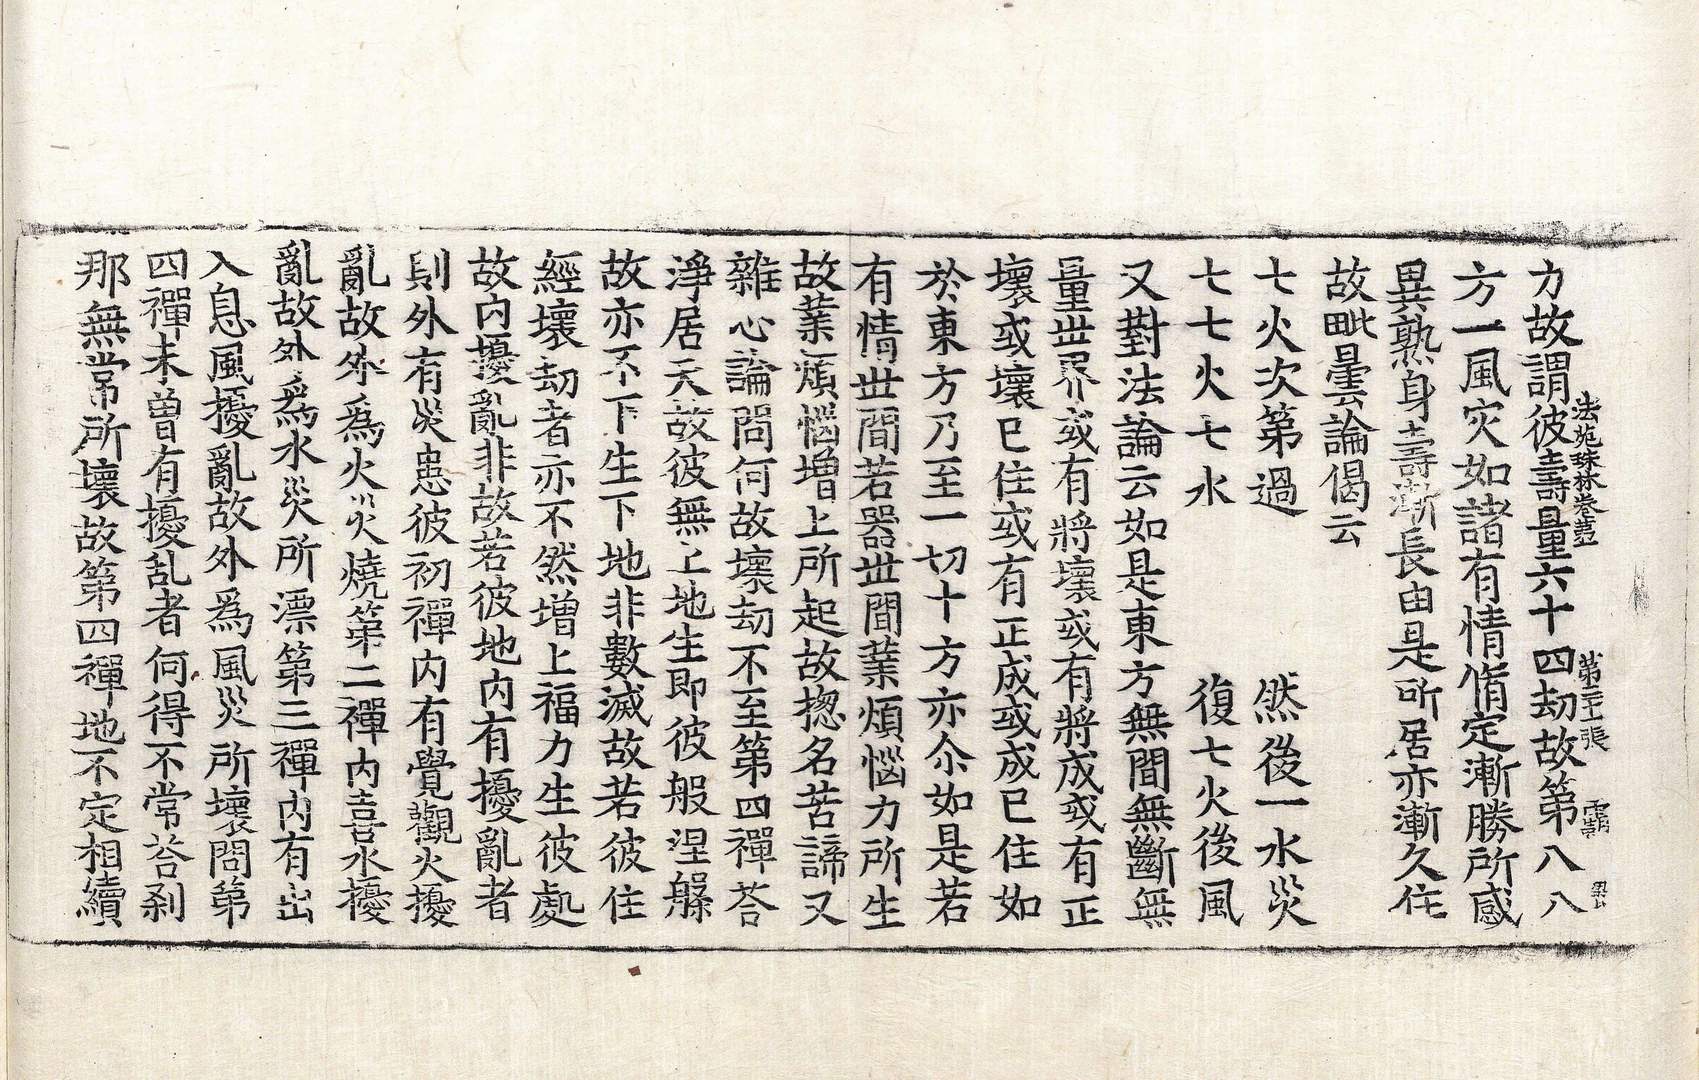 力故謂彼壽量六十四劫故第八八
法苑珠林卷苐一 第二十一張 霸
方一風灾如諸有情脩定漸勝所感
異熟身壽漸長由是所居亦漸久住
故毗曇論偈云
七火次第過 然後一水災
七七火七水 復七火後風
又對法論云如是東方無間無斷無
量世界或有將壞或有將成或有正
壞或壞已住或有正成或成已住如
於東方乃至一切十方亦尒如是若
有情世間若器世間業煩惱力所生
故業煩惱增上所起故揔名苦諦又
雜心論問何故壞劫不至第四禪荅
淨居天故彼無上地生即彼般涅槃
故亦不下生下地非數滅故若彼住
經壞劫者亦不然增上福力生彼處
故内擾亂非故若彼地内有擾亂者
則外有災患彼初禪内有覺觀火擾
亂故外為火災燒第二禪内喜水擾
亂故外為水災所漂第三禪内有出
入息風擾亂故外為風災所壞問第
四禪未曾有擾乱者何得不常荅刹
那無常所壞故第四禪地不定相續